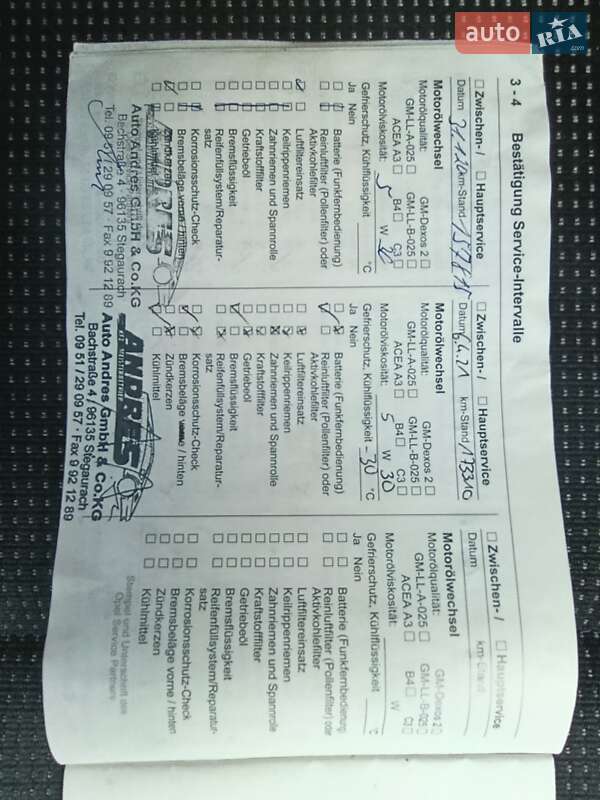 auto RIA .com
3 - 4 Bestätigung Service-Intervalle
□ Zwischen- / □ Hauptservice
Datum km-Stand
Motorölwechsel
Motorölqualität: GM-Dexos 2 □
GM-LL-A-025 □ GM-LL-B-025 □
ACEA A3 □ B4 □ C3 □
Motorölviskosität: 5 W 30
Gefrierschutz, Kühlflüssigkeit °C
Ja Nein
Batterie (Funkfernbedienung)
Reinluftfilter (Pollenfilter) oder
Aktivkohlefilter
Luftfiltereinsatz
Keilrippenriemen
Zahnriemen und Spannrolle
Kraftstofffilter
Getriebeöl
Bremsflüssigkeit
Reifenfüllsystem/Reparatur-
satz
Korrosionsschutz-Check
Bremsbeläge vorne / hinten
Zündkerzen
Auto Andres GmbH & Co.KG
Bachstraße 4 · 96135 Stegaurach
Tel. 09 51 / 29 09 57 · Fax 9 92 12 89
□ Zwischen- / □ Hauptservice
Datum 6.4.21 km-Stand 173310
Motorölwechsel
Motorölqualität: GM-Dexos 2 □
GM-LL-A-025 □ GM-LL-B-025 □
ACEA A3 □ B4 □ C3 □
Motorölviskosität: 5 W 30
Gefrierschutz, Kühlflüssigkeit -30 °C
Ja Nein
Batterie (Funkfernbedienung)
Reinluftfilter (Pollenfilter) oder
Aktivkohlefilter
Luftfiltereinsatz
Keilrippenriemen
Zahnriemen und Spannrolle
Kraftstofffilter
Getriebeöl
Bremsflüssigkeit
Reifenfüllsystem/Reparatur-
satz
Korrosionsschutz-Check
Bremsbeläge vorne / hinten
Zündkerzen
Kühlmittel
ANDRES
Auto Andres GmbH & Co.KG
Bachstraße 4 / 96135 Stegaurach
Tel. 09 51 / 29 09 57 · Fax 9 92 12 89
□ Zwischen- / □ Hauptservice
Datum km-Stand
Motorölwechsel
Motorölqualität: GM-Dexos 2 □
GM-LL-A-025 □ GM-LL-B-025 □
ACEA A3 □ B4 □ C3 □
Motorölviskosität: W
Gefrierschutz, Kühlflüssigkeit °C
Ja Nein
Batterie (Funkfernbedienung)
Reinluftfilter (Pollenfilter) oder
Aktivkohlefilter
Luftfiltereinsatz
Keilrippenriemen
Zahnriemen und Spannrolle
Kraftstofffilter
Getriebeöl
Bremsflüssigkeit
Reifenfüllsystem/Reparatur-
satz
Korrosionsschutz-Check
Bremsbeläge vorne / hinten
Zündkerzen
Kühlmittel
Stempel und Unterschrift des
Opel Service Partners